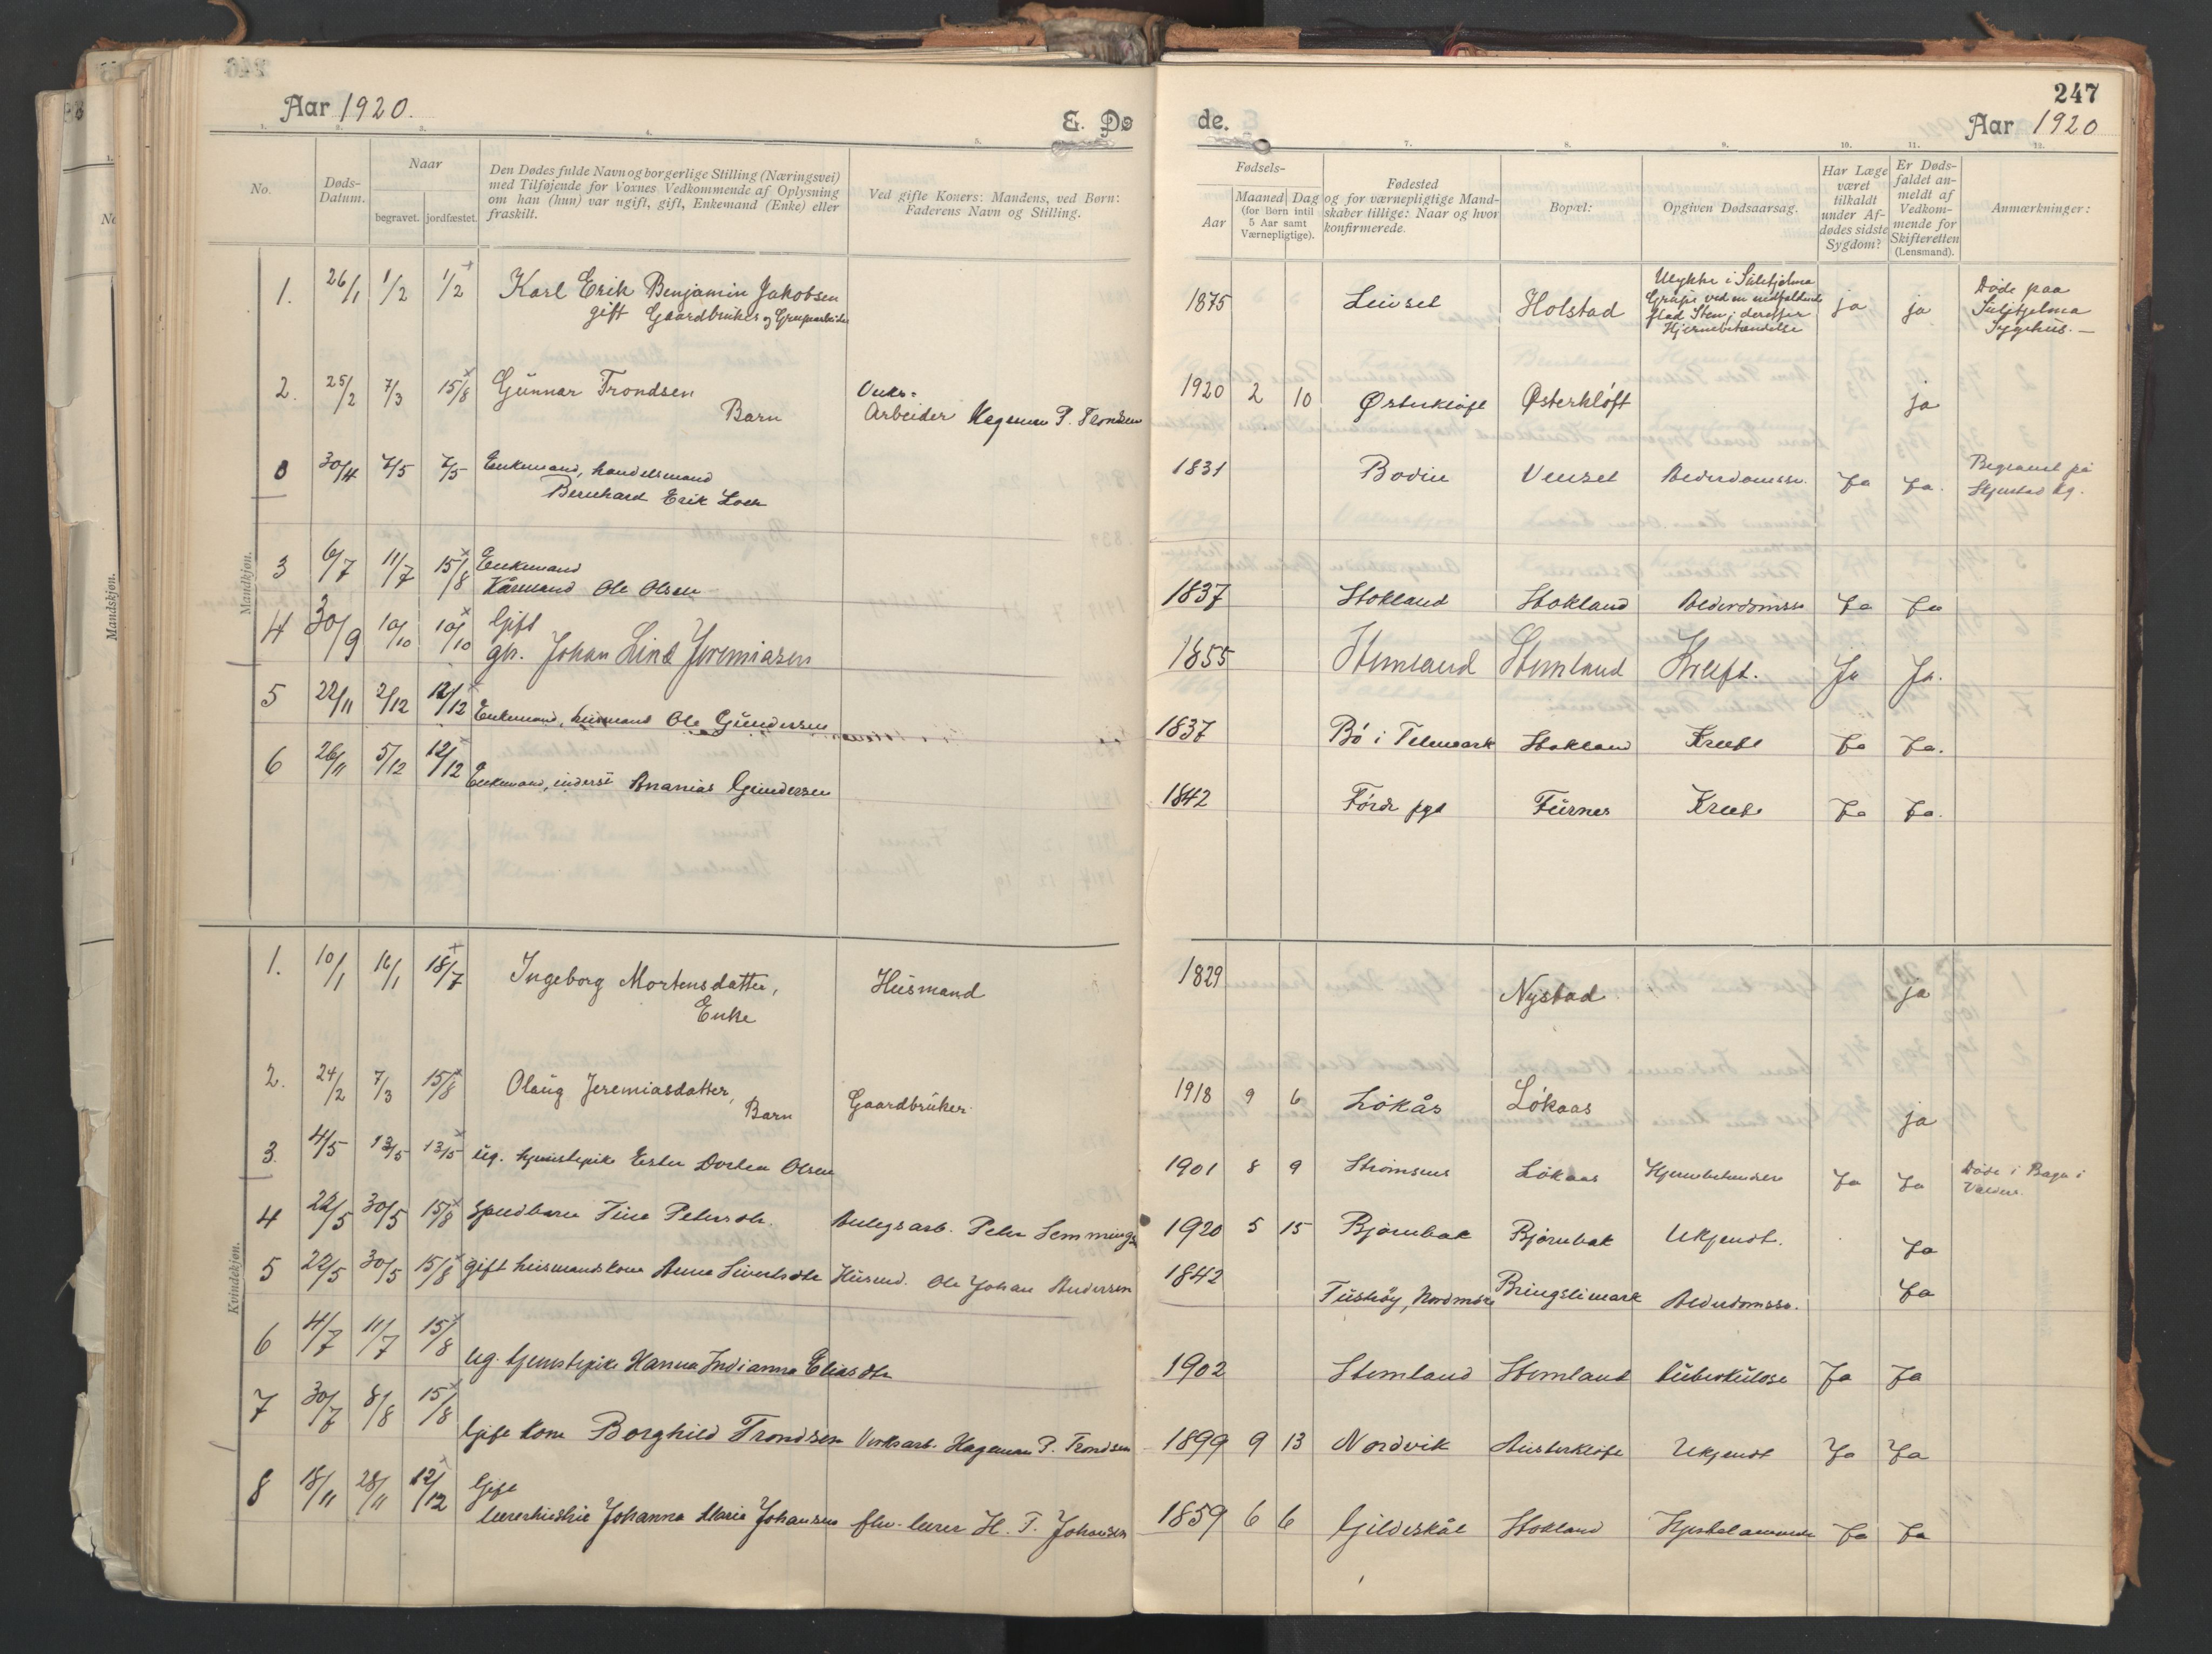 247
Aar 1920.
E. Dø
de.
Aar 1920
1. 2. 3. 4. 5. 7. 8. 9. 10. 11. 12.
No.
Døds-
Datum.
Naar
begravet. jordfæstet.
Den Dødes fulde Navn og borgerlige Stilling (Næringsvei)
med Tilføjende for Voxnes Vedkommende af Oplysning
om han (hun) var ugift, gift, Enkemand (Enke) eller
fraskilt.
Ved gifte Koners: Mandens, ved Børn:
Faderens Navn og Stilling.
Fødsels-
Aar
Maaned Dag
(for Børn intil
5 Aar samt
Værnepligtige).
Fødested
og for værnepligtige Mand-
skaber tillige: Naar og hvor
konfirmerede.
Bopæl:
Opgiven Dødsaarsag.
Har Læge
været
tilkaldt
under Af-
dødes sidste
Sygdom?
Er Døds-
faldet an-
meldt af
Vedkom-
mende for
Skifteretten
(Lensmand).
Anmærkninger:
Mandkjøn.
1. 26/1 1/2 1/2 Karl Erik Benjamin Jakobsen 1875 Leivset Holstad ja ja
gift Gaardbruker og Grubearbeider
Ulykke i Sulitjelma
Grube ved en nedfaldende
flad Sten; derefter
Hjernebetændelse
Døde paa
Sulitjelma
Sygehus.—
2. 25/2 7/3 15/8 Gunnar Trondsen 1920 2 10 Østerkløft Østerkløft ja
Barn
Arbeider Hageman P. Trondsen
0 30/4 7/5 7/5 Enkemand, handelsmand 1831 Bodin Venset Alderdomssv. Ja Ja.
Bernhard Erik Loch
Begravet på
Skjerstad kg.
3 6/7 11/7 15/8 Enkemand
Kårmand Ole Olsen 1837 Stokland Stokland Alderdomssv Ja Ja
4 30/9 10/10 10/10 Gift
gbr. Johan Lind Jeremiasen 1855 Stemland Stemland Kræft. Ja Ja.
5 22/11 2/12 12/12 Enkemand, husmand Ole Gundersen 1837 Bø i Telemark Stokland Kræft Ja Ja.
6 26/11 5/12 12/12 Enkemand, inderst Ananias Gundersen 1842 Førde pgd Furnes Kræft Ja Ja.
Kvindekjøn.
1. 10/1 16/1 18/7 Ingeborg Mortensdatter, Husmand 1829 Nystad ja
Enke
2. 24/2 7/3 15/8 Olaug Jeremiasdatter, Gaardbruker 1918 9 6 Løkås Løkaas ja
Barn
3. 4/5 13/5 13/5 ug. tjenestepike Ester Dortea Olsen 1901 8 9 Strømsnes Løkaas Hjernebetændelse Ja Ja
Døde i Bagn i
Valdres.
4 22/5 30/5 15/8 Spedbarn Fina Petersdtr. Anlegsarb. Peter Lemmings 1920 5 15 Bjørnbak Bjørnbak Ukjendt. Ja
5 22/5 30/5 15/8 gift husmandskone Anna Sivertsdtr Husmd. Ole Johan Andersen 1842 Tustrøy, Nordmøre Bringslimark Alderdomssv. Ja
6 4/7 11/7 15/8 ug. tjenestepike Hanna Indianna Eliasdtr 1902 Stemland Stemland tuberkulose Ja Ja
7 30/7 8/8 15/8 Gift kone Borghild Trondsen Verksarb. Hageman P. Trondsen 1899 9 13 Nordvik Austerkløft Ukjendt Ja Ja
8 18/11 28/11 12/12 Gift
lærerhustru Johanna Marie Johansen fhv. lærer H. T. Johansen 1859 6 6 Gildeskål Stokland Ja Ja
Mandskjøn.